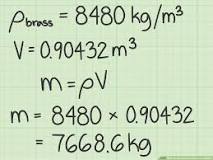 ρbrass = 8480 kg/m³
V = 0.90432 m³
m = ρV
m = 8480 × 0.90432
= 7668.6 kg